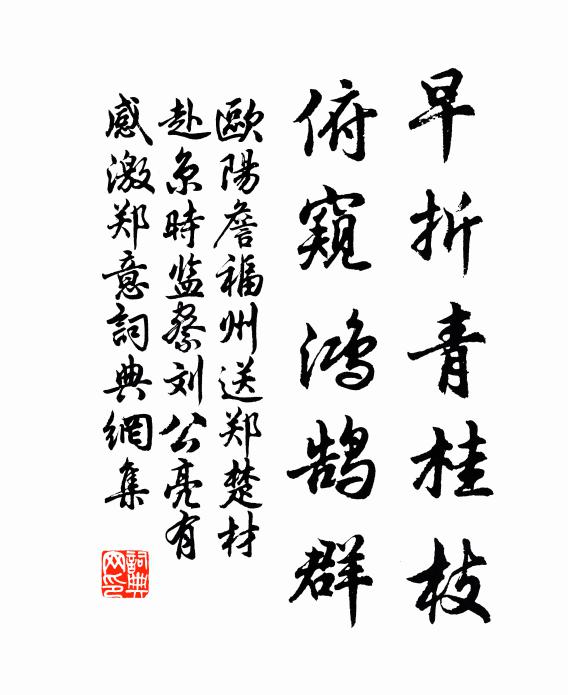 早折青桂枝
俯窺鴻鹄群
歐陽詹福州送郑楚材
赴京時监察刘公亮有
感激郑意詞典網集
詞典
网印